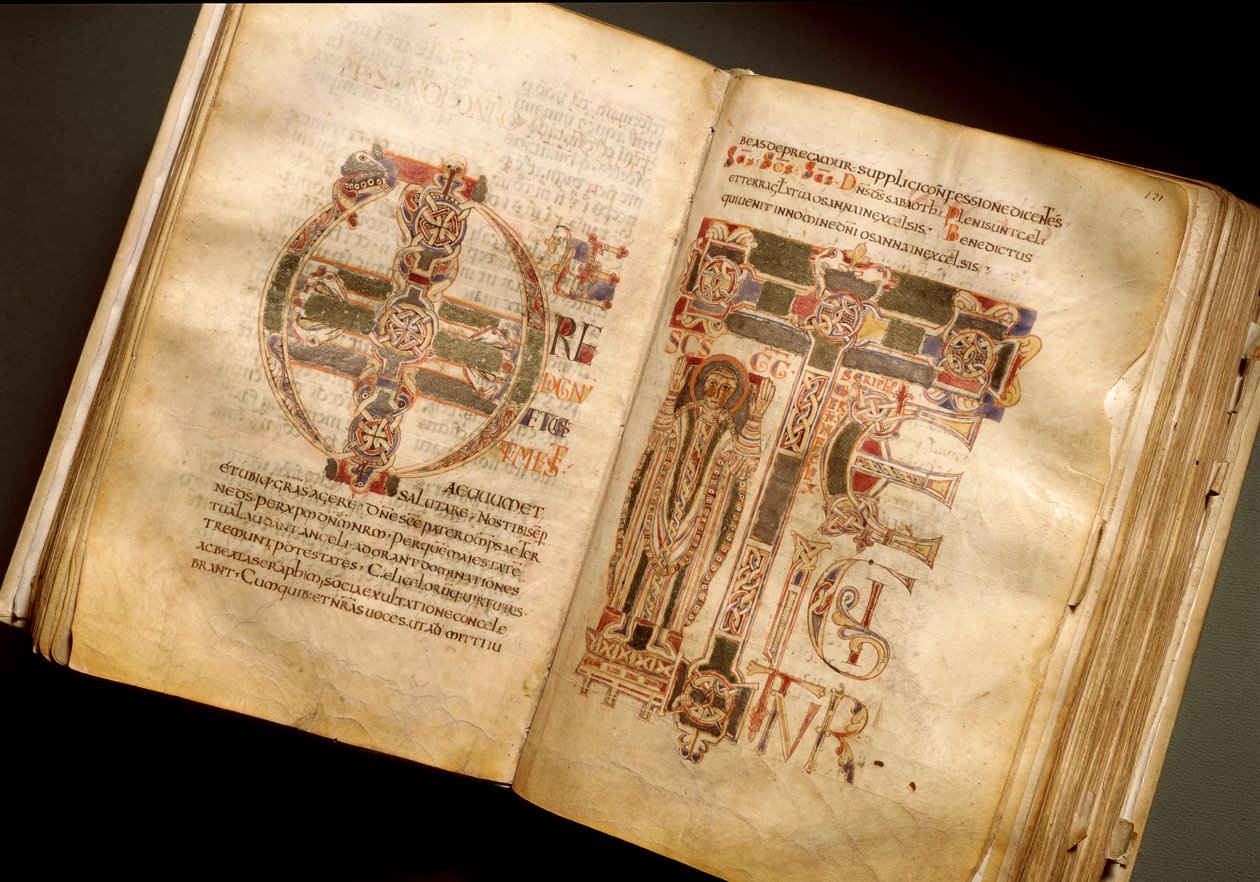 RE
DGN
ETIUS
EMES
AEQUUMET
SALUTARE; NOSTIBISEP
ETUBIQ; GRAS AGERE; DNE SCE PATER OMPS AETER
NE DS; PER XPM DNM NRM, PER QUEM MAIESTATE
TUA LAUDANT ANGELI, ADORANT DOMINATIONES
TREMUNT POTESTATES, CAELI CELORUQ; UIRTUTES
AC BEATA SERAPHIM, SOCIA EXULTATIONE CONCELE
BRANT, CUM QUIB; ET NRAS UOCES. UT ADMITTI IU
171
BEAS DEPRECAMUR; SUPPLICI CONFESSIONE DICENTES,
SCS SCS SCS DNS DS SABAOTH; PLENI SUNT CELI
ET TERRA GLA TUA OSANNA IN EXCELSIS, BENEDICTUS
QUI UENIT IN NOMINE DNI OSANNA IN EXCELSIS;
SCS GG
E
IGI
TUR